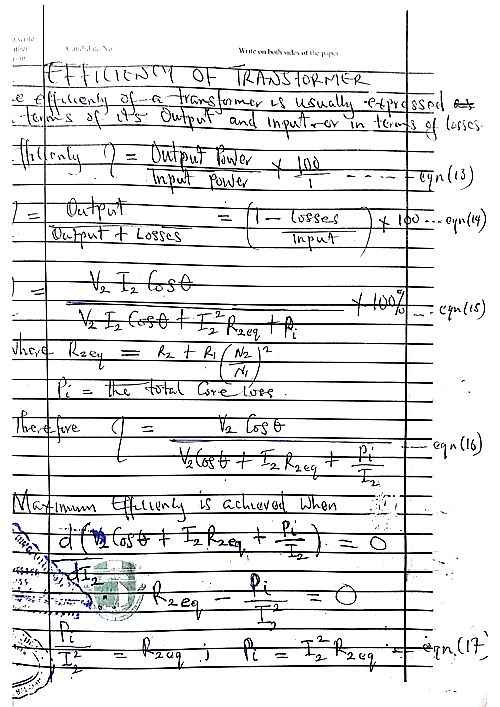 Candidate No
Write on both sides of the paper
EFFICIENCY OF TRANSFORMER
e efficienty of a transformer is usually expressed
terms of it's Output and input or in terms of losses.
fficienty η = Output Power / Input Power × 100/1 ---- eqn(13)
η = Output / Output + Losses = (1 - Losses / Input) × 100 --- eqn(14)
= V₂ I₂ Cosθ / V₂ I₂ Cosθ + I₂² R₂eq + Pi × 100% -- eqn(15)
where R₂eq = R₂ + R₁ (N₂/N₁)²
Pi = the total Core loss.
Therefore η = V₂ Cosθ / V₂ Cosθ + I₂ R₂eq + Pi/I₂ --- eqn(16)
Maximum Efficiency is achieved when
d(V₂ Cosθ + I₂ R₂eq + Pi/I₂) / dI₂ = 0
R₂eq - Pi/I₂² = 0
Pi/I₂² = R₂eq ; Pi = I₂² R₂eq - eqn(17)